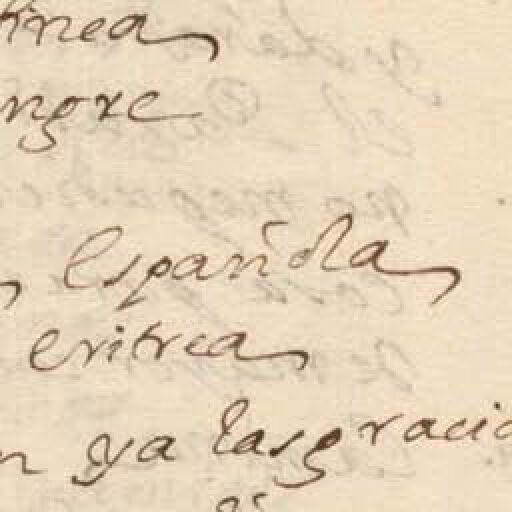 tinea
ngre
Española
eritrea
n ya las gracia